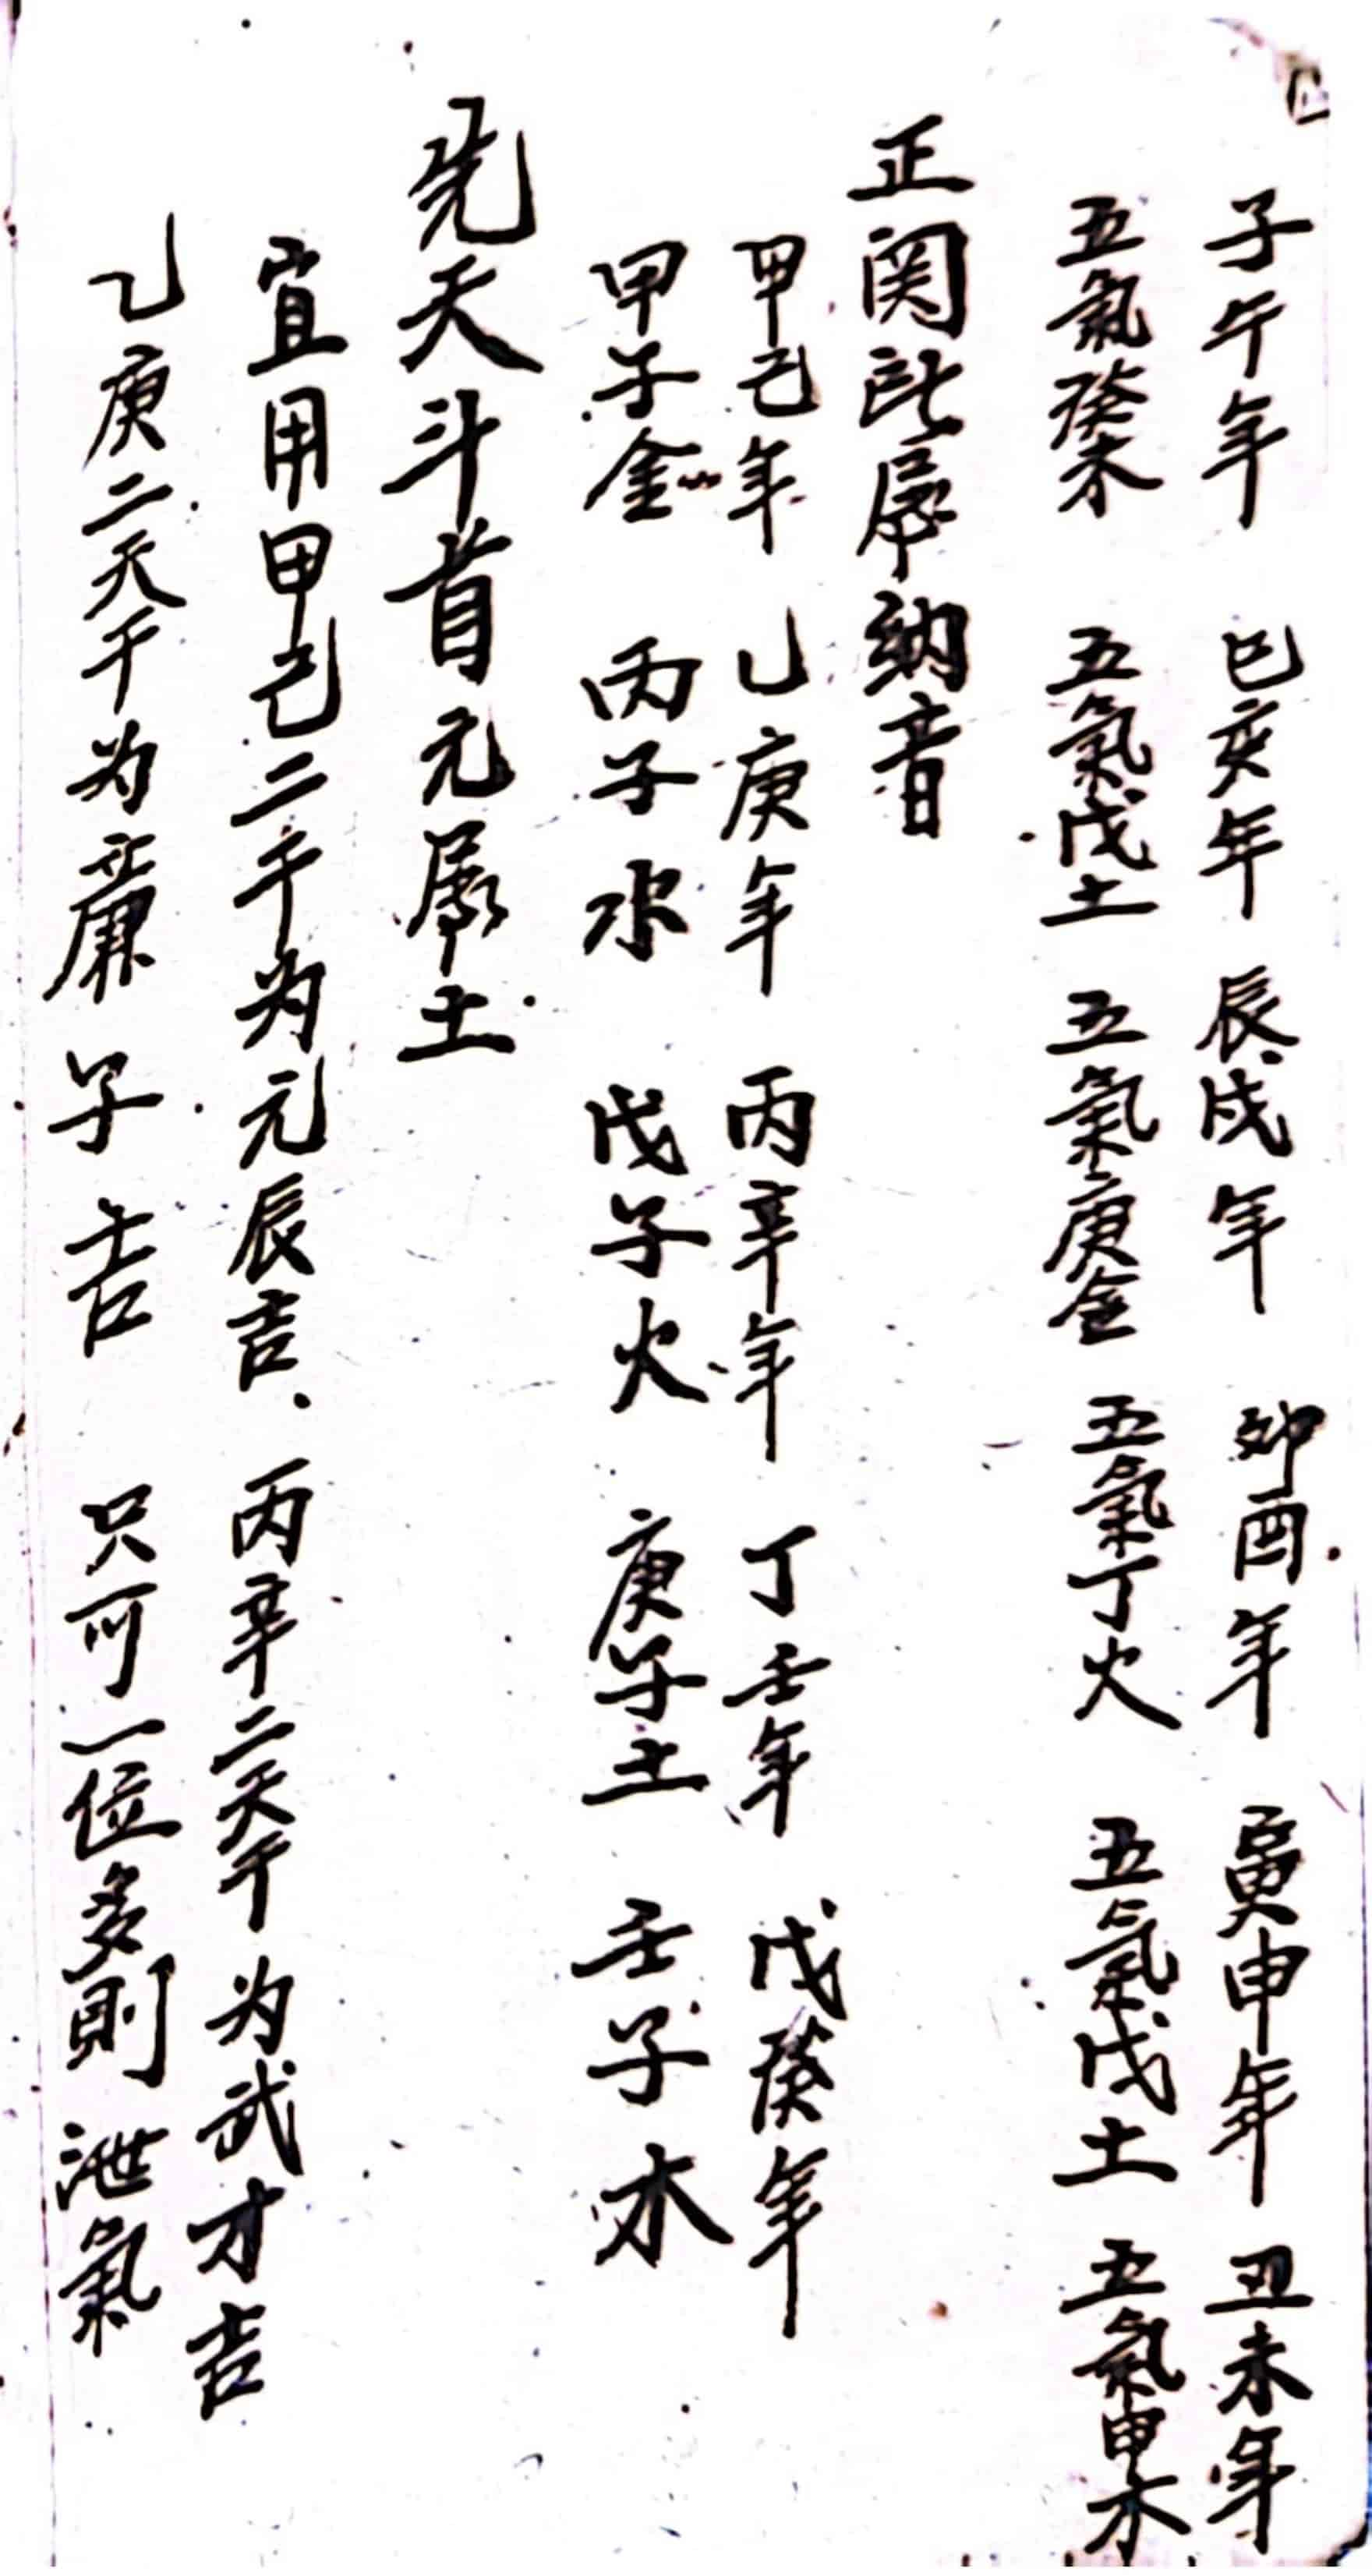 子午年 巳亥年 辰戌年 卯酉年 寅申年 丑未年
五氣癸水 五氣戊土 五氣庚金 五氣丁火 五氣戊土 五氣甲木
正関此屬納音
甲己年 乙庚年 丙辛年 丁壬年 戊癸年
甲子金 丙子水 戊子火 庚子土 壬子木
先天斗首元屬土
宜用甲己二干为元辰吉. 丙辛二天干为武才吉
乙庚二天干为廉子吉 只可一位多則泄氣